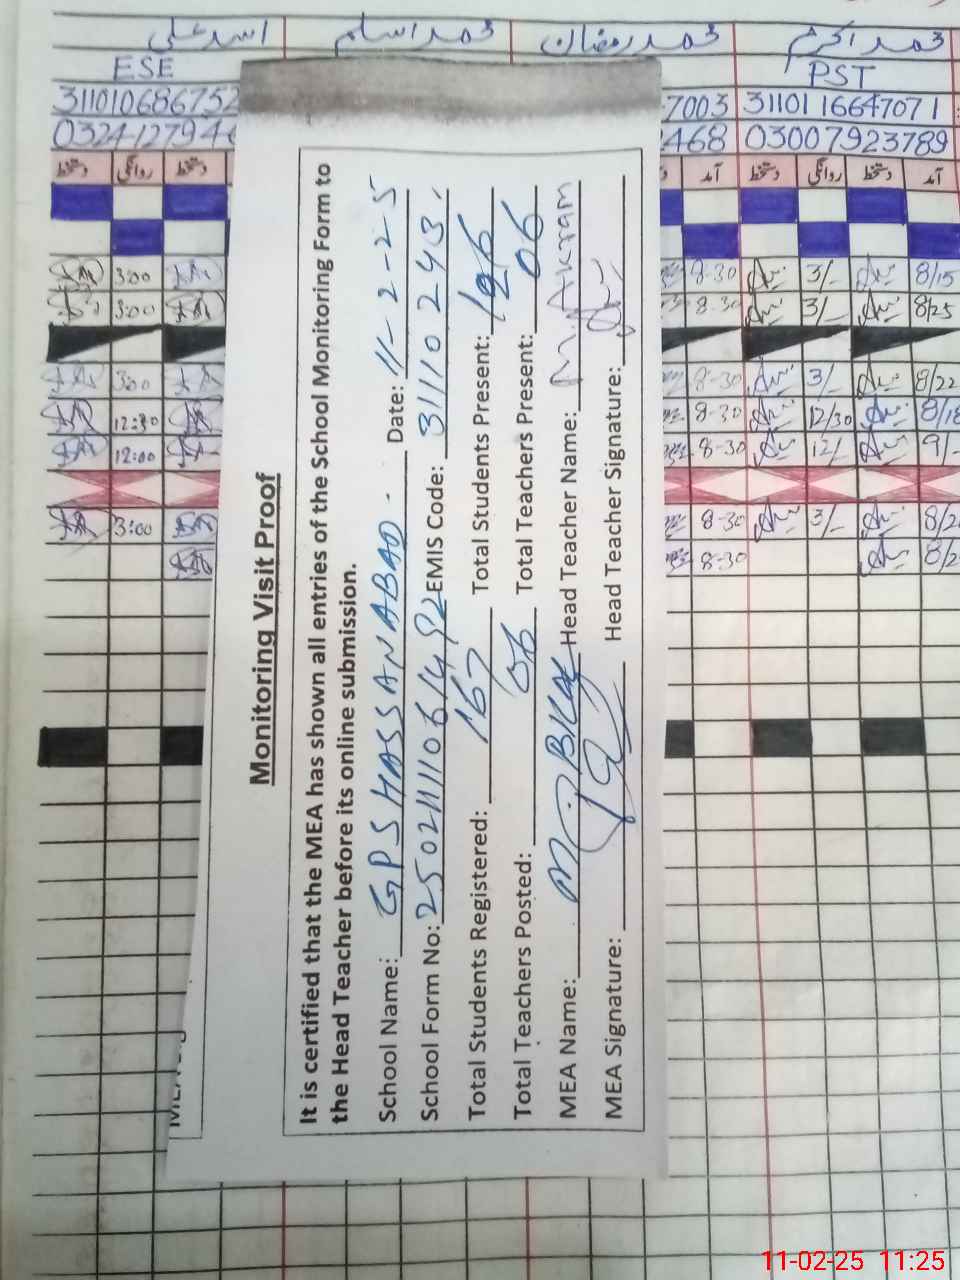 اسد علی محمد اسلم محمد رمضان محمد اکرم
ESE PST
7003 31101 1664707 1
468 03007923789
دستخط روانگی دستخط آمد دستخط روانگی دستخط آمد
3:00 8-30 3/- 8/15
3:00 8-30 3/- 8/25
3:00 8-30 3/- 8/22
12:30 8-30 12/30
12:00 8-30 12/- 9/-
3:00 8-30 3/-
8-30
Monitoring Visit Proof
It is certified that the MEA has shown all entries of the School Monitoring Form to
the Head Teacher before its online submission.
School Name: GPS HASSANABAD. Date: 11-2-25
School Form No: EMIS Code: 31110243.
Total Students Registered: 167 Total Students Present: 126
Total Teachers Posted: 06 Total Teachers Present: 06
MEA Name: Head Teacher Name: M. Akram
MEA Signature: Head Teacher Signature:
11-02-25 11:25